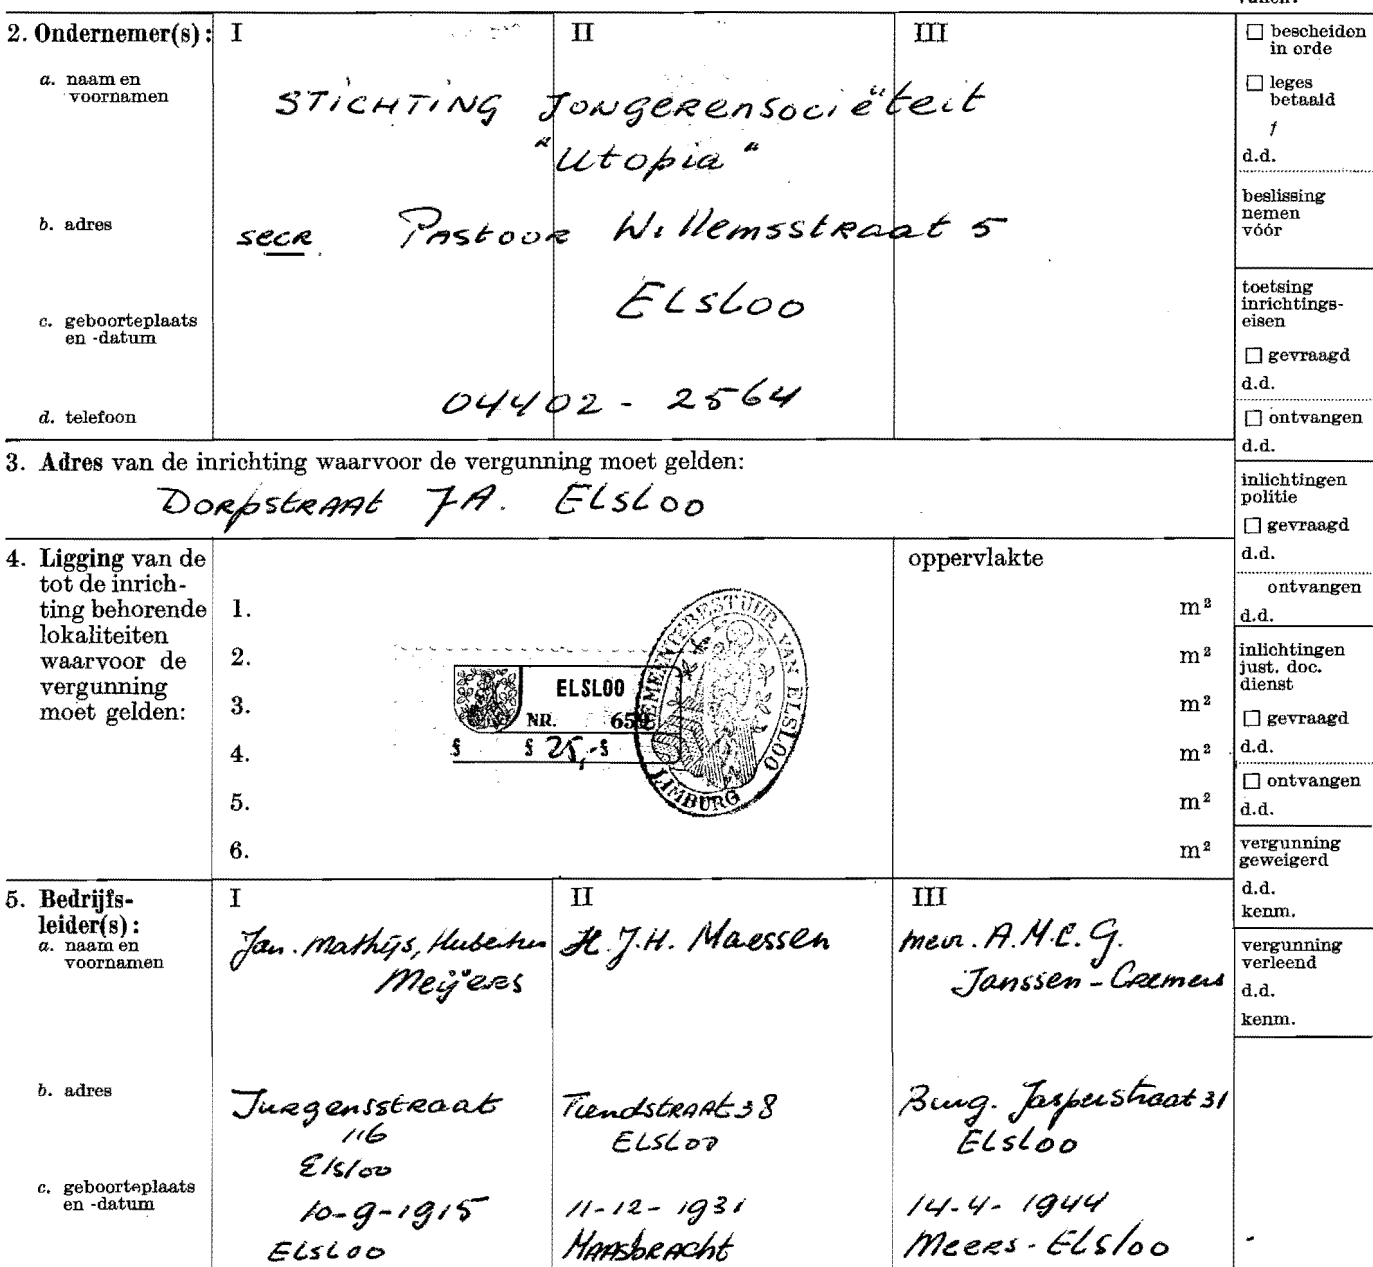 vullen:
2. Ondernemer(s): I II III
a. naam en
voornamen
STICHTING JONGERENSociëteit
"Utopia"
b. adres
secr Pastoor Willemsstraat 5
ELSLOO
c. geboorteplaats
en -datum
d. telefoon
04402 - 2564
3. Adres van de inrichting waarvoor de vergunning moet gelden:
DORPSTRAAT 7A. ELSLOO
4. Ligging van de
tot de inrich-
ting behorende
lokaliteiten
waarvoor de
vergunning
moet gelden:
oppervlakte
1. m²
2. m²
3. m²
4. m²
5. m²
6. m²
ELSLOO
NR.
§ § 25,- §
GEMEENTEBESTUUR VAN ELSLOO
LIMBURG
5. Bedrijfs-
leider(s):
I II III
a. naam en
voornamen
Jan. Mathijs, Hubertus
Meijers
H.J.H. Maessen
mevr. A.M.C.G.
Janssen-Cremers
b. adres
Jurgensstraat
116
Elsloo
Tiendstraat 38
ELSLOO
Burg. Jasperstraat 31
ELSLOO
c. geboorteplaats
en -datum
10-9-1915
ELSLOO
11-12-1931
MAASBRACHT
14-4-1944
Meers-Elsloo
bescheiden
in orde
leges
betaald
f
d.d.
beslissing
nemen
vóór
toetsing
inrichtings-
eisen
gevraagd
d.d.
ontvangen
d.d.
inlichtingen
politie
gevraagd
d.d.
ontvangen
d.d.
inlichtingen
just. doc.
dienst
gevraagd
d.d.
ontvangen
d.d.
vergunning
geweigerd
d.d.
kenm.
vergunning
verleend
d.d.
kenm.